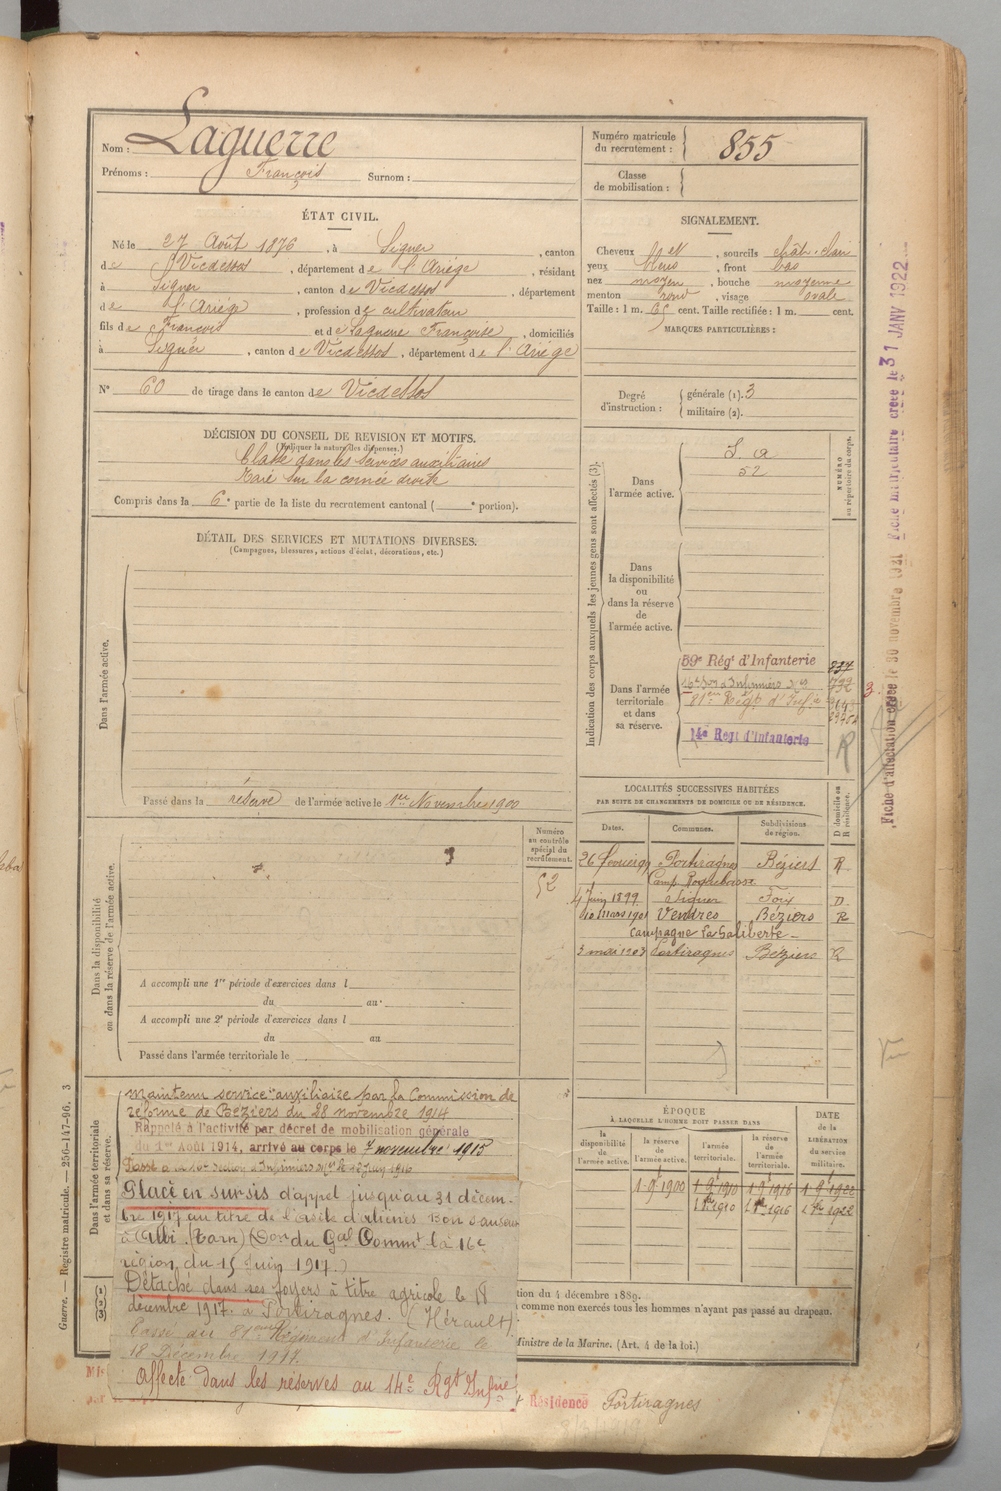 Nom : Laguerre
Prénoms : François Surnom :
Numéro matricule du recrutement : 855
Classe de mobilisation :
ÉTAT CIVIL.
Né le 27 Août 1876, à Siguer, canton
de Vicdessos, département de l'Ariège, résidant
à Siguer, canton de Vicdessos, département
de l'Ariège, profession de cultivateur
fils de François et de Laguerre Françoise, domiciliés
à Siguer, canton de Vicdessos, département de l'Ariège
N° 60 de tirage dans le canton de Vicdessos
SIGNALEMENT.
Cheveux , sourcils chât. clair
yeux bleus, front bas
nez moyen, bouche moyenne
menton rond, visage ovale
Taille : 1 m. 65 cent. Taille rectifiée : 1 m. cent.
MARQUES PARTICULIÈRES :
Degré d'instruction : générale (1). 3
militaire (2).
DÉCISION DU CONSEIL DE REVISION ET MOTIFS.
(Indiquer la nature des dispenses.)
Classé dans les services auxiliaires
Taie sur la cornée droite
Compris dans la 6e partie de la liste du recrutement cantonal ( e portion).
DÉTAIL DES SERVICES ET MUTATIONS DIVERSES.
(Campagnes, blessures, actions d'éclat, décorations, etc.)
Dans l'armée active.
Passé dans la réserve de l'armée active le 1er Novembre 1900
Indication des corps auxquels les jeunes gens sont affectés (3).
NUMÉRO au répertoire du corps.
Dans l'armée active.
S. A
52
Dans la disponibilité ou dans la réserve de l'armée active.
Dans l'armée territoriale et dans sa réserve.
59e Régt d'Infanterie
16e Son d'Infirmiers
81em Régt d'Infie
14e Regt d'Infanterie
R
LOCALITÉS SUCCESSIVES HABITÉES
PAR SUITE DE CHANGEMENTS DE DOMICILE OU DE RÉSIDENCE.
D domicile ou R résidence.
Dates. Communes. Subdivisions de région.
26 février 99 Portiragnes Béziers R
Camp. Roquebasse
4 Juin 1899 Siguer Foix D
10 Mars 1901 Vendres Béziers R
Campagne La Galiberte
3 mai 1903 Portiragnes Béziers R
Dans la disponibilité ou dans la réserve de l'armée active.
Numéro au contrôle spécial du recrutement.
52
A accompli une 1re période d'exercices dans l
du au
A accompli une 2e période d'exercices dans l
du au
Passé dans l'armée territoriale le
Dans l'armée territoriale et dans sa réserve.
Maintenu service auxiliaire par la Commission de
réforme de Béziers du 28 novembre 1914
Rappelé à l'activité par décret de mobilisation générale
du 1er Août 1914, arrivé au corps le 7 novembre 1915
Passé à la 16e section d'Infirmiers Mres le 28 Juin 1916
Placé en sursis d'appel jusqu'au 31 décem-
bre 1917 au titre de l'asile d'aliénés Bon Sauveur
à Albi (Tarn) (Don du Gal Commt la 16e
région du 15 Juin 1917.)
Détaché dans ses foyers à titre agricole le 18
décembre 1917. à Portiragnes. (Hérault).
Passé au 81eme Régiment d'Infanterie le
18 Décembre 1917.
Affecté dans les réserves au 14e Rgt Infrie
ÉPOQUE
À LAQUELLE L'HOMME DOIT PASSER DANS
DATE de la LIBÉRATION du service militaire.
la disponibilité de l'armée active. la réserve de l'armée active. l'armée territoriale. la réserve de l'armée territoriale.
1-9-1900 1-9-1910 1-9-1916 1-9-1922
1 8bre 1910 1 8bre 1916 1 8bre 1922
tion du 4 décembre 1889.
comme non exercés tous les hommes n'ayant pas passé au drapeau.
Ministre de la Marine. (Art. 4 de la loi.)
Résidence Portiragnes
Guerre. — Registre matricule. — 256-147-96. 3
Fiche d'affectation créée le 30 novembre 1921 Fiche matriculaire créée le 31 JANV 1922